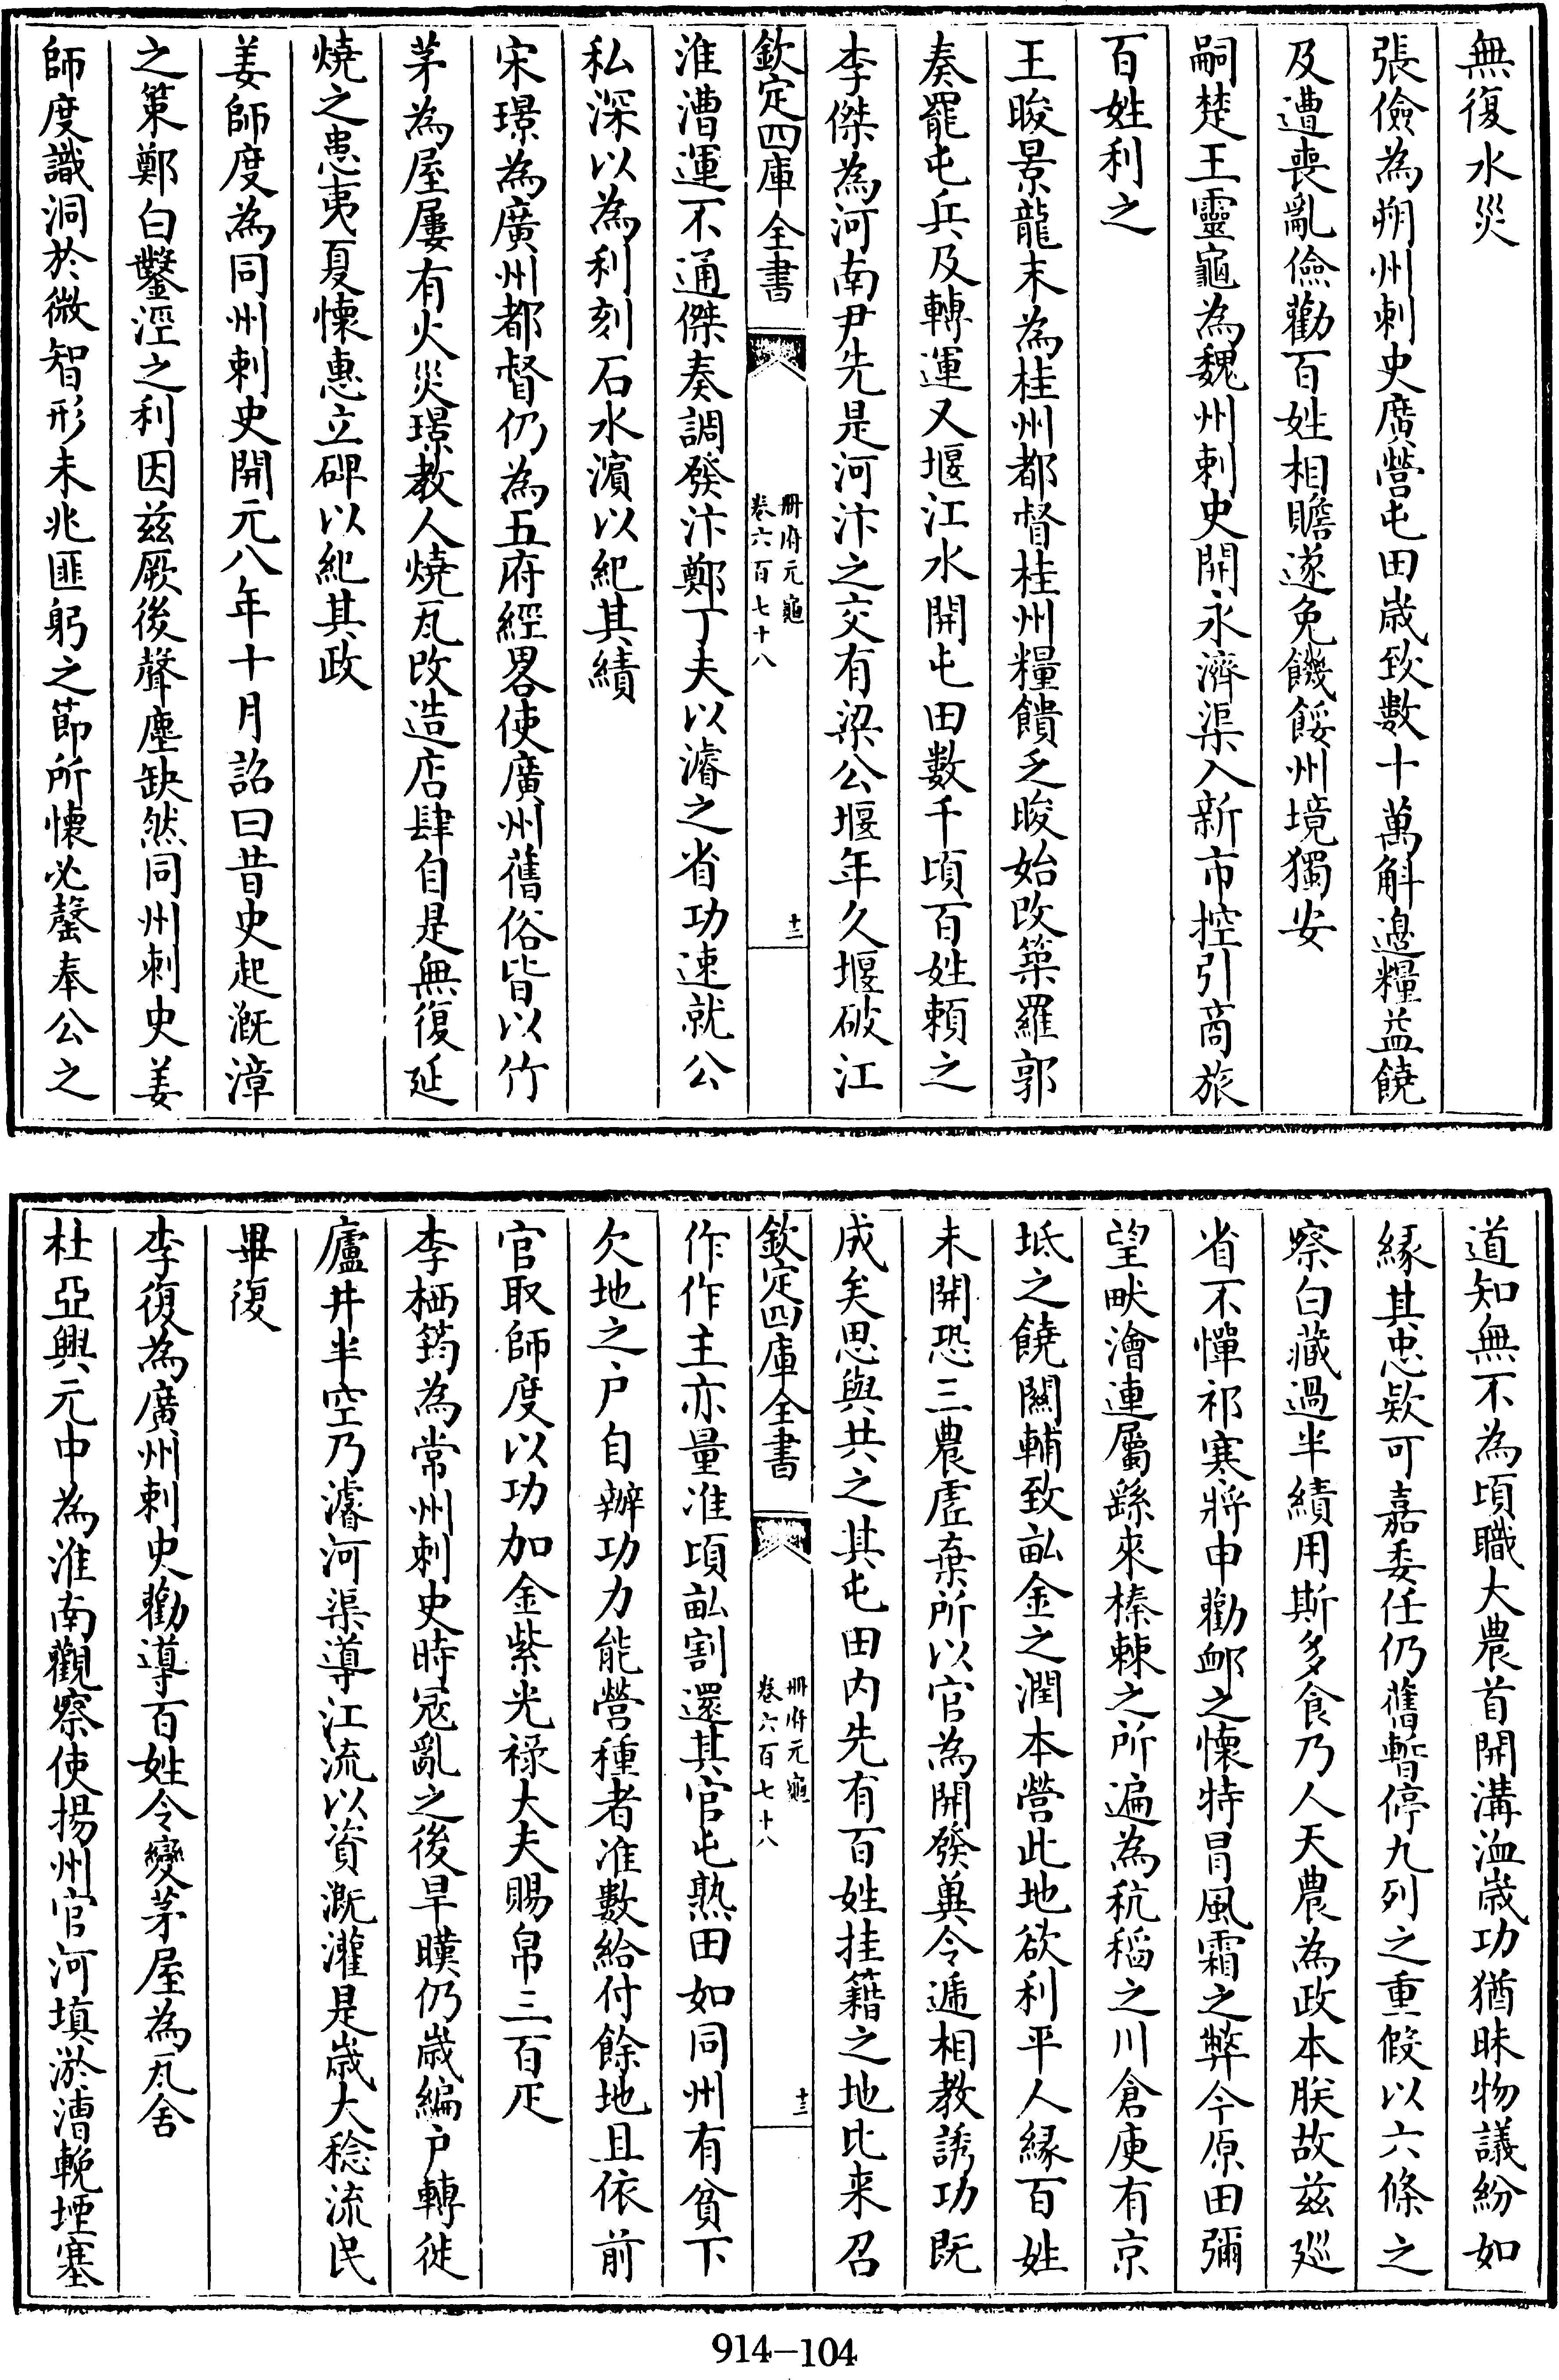 無復水災
張儉為朔州刺史廣營屯田歲致數十萬斛邊糧益饒
及遭喪亂儉勸百姓相贍遂免饑餒州境獨安
嗣楚王靈龜為魏州刺史開永濟渠入新市控引商旅
百姓利之
王晙景龍末為桂州都督桂州糧饋乏晙始改築羅郭
奏罷屯兵及轉運又堰江水開屯田數千頃百姓賴之
李傑為河南尹先是河汴之交有梁公堰年久堰破江
欽定四庫全書
冊府元龜
卷六百七十八
十二
淮漕運不通傑奏調發汴鄭丁夫以濬之省功速就公
私深以為利刻石水濱以紀其績
宋璟為廣州都督仍為五府經畧使廣州舊俗皆以竹
茅為屋屢有火災璟教人燒瓦改造店肆自是無復延
燒之患夷夏懷惠立碑以紀其政
姜師度為同州刺史開元八年十月詔曰昔史起溉漳
之策鄭白鑿涇之利因茲厥後聲塵缺然同州刺史姜
師度識洞於微智形未兆匪躬之節所懷必罄奉公之
道知無不為頃職大農首開溝洫歲功猶昧物議紛如
緣其忠欵可嘉委任仍舊暫停九列之重假以六條之
察白藏過半績用斯多食乃人天農為政本朕故茲廵
省不憚祁寒將申勸䘏之懷特冒風霜之弊今原田彌
望畎澮連屬繇來榛棘之所遍為秔稻之川倉庾有京
坻之饒關輔致畝金之潤本營此地欲利平人緣百姓
未開恐三農虛棄所以官為開發冀令遞相教誘功既
成矣思與共之其屯田内先有百姓挂籍之地比来召
欽定四庫全書
冊府元龜
卷六百七十八
十三
作作主亦量准頃畝割還其官屯熟田如同州有貧下
欠地之户自辦功力能營種者准數給付餘地且依前
官取師度以功加金紫光祿大夫賜帛三百疋
李栖筠為常州刺史時寇亂之後旱暵仍歲編户轉徙
廬井半空乃濬河渠導江流以資溉灌是歲大稔流民
畢復
李復為廣州刺史勸導百姓令變茅屋為瓦舍
杜亞興元中為淮南觀察使揚州官河填淤漕輓堙塞
914-104